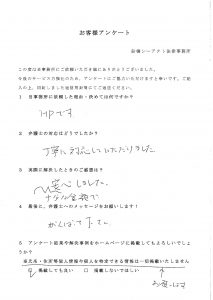 お客様アンケート
前橋シープクト法律事務所
この度は当事務所にご依頼いただき誠にありがとうございました。
今後のサービス向上のため、アンケートにご協力いただけますと幸いです。ご記
入の上、同封しました返信用封筒にてご返信ください。
1 当事務所に依頼した理由・決めては何ですか?
HPです
2 弁護士の対応はどうでしたか?
丁寧に対応していただけました
3 実際に解決したときのご感想は?
安心しました。
十分な金額で
4 最後に、弁護士へのメッセージをお願いします!
がんばって下さい
5 アンケート結果や解決事例をホームページに掲載してもよろしいでしょうか?
※氏名・住所等個人情報や個人を特定できる情報は一切掲載いたしません
掲載しても良い □ 掲載しないでほしい
お願いします